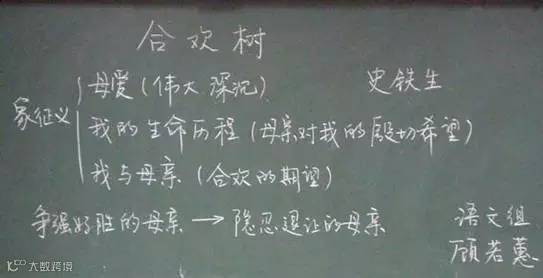 合欢树
史铁生
象征义
母爱(伟大 深沉)
我的生命历程(母亲对我的殷切希望)
我与母亲(合欢的期望)
争强好胜的母亲→隐忍退让的母亲
语文组
顾若蕙
大数跨境